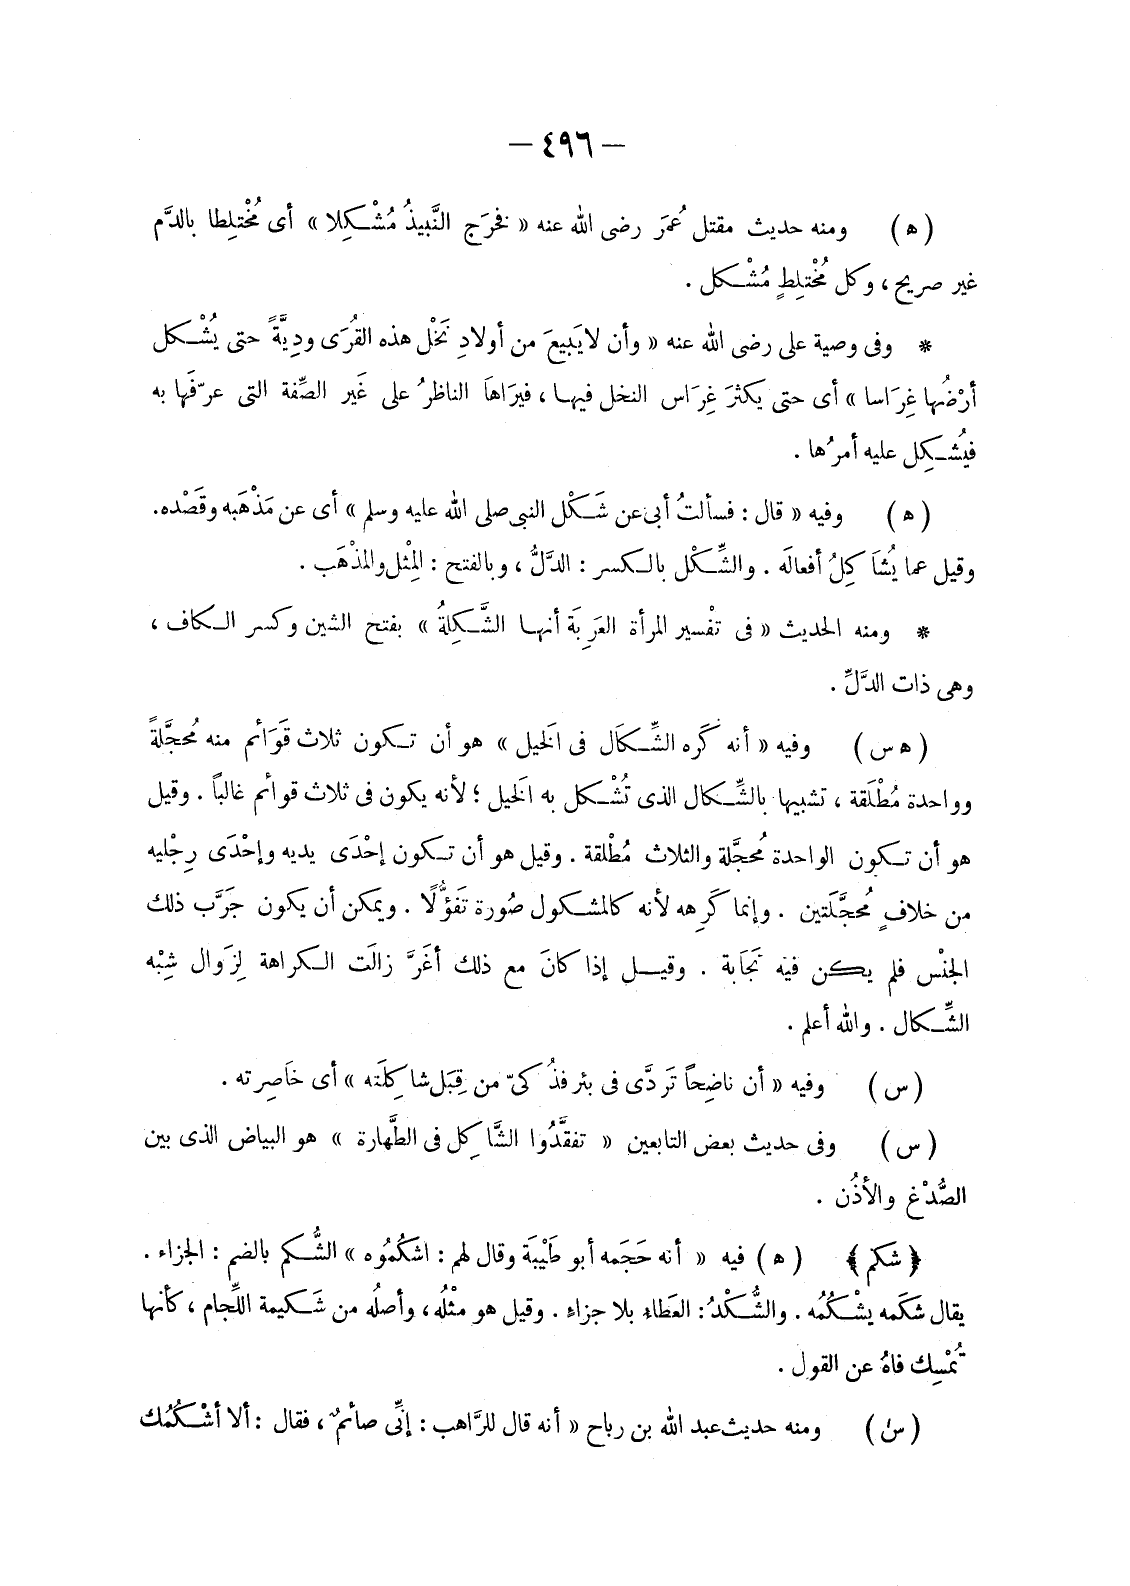 — ٤٩٦ —
( ه ) ومنه حديث مقتل عُمَر رضى الله عنه « فخرَج النَّبيذُ مُشْكِلا » أى مُخْتلِطا بالدَّم
غير صريح ، وكل مُخْتلِطٍ مُشْكل .
* وفى وصية على رضى الله عنه « وأن لايَبيعَ من أولادِ نَخْل هذه القُرَى ودِيَّةً حتى يُشْكل
أرْضُها غِرَاسا » أى حتى يكثرَ غِرَاس النخل فيها ، فيرَاهاَ الناظرُ على غَير الصِّفة التى عرّفَها به
فيُشكِل عليه أمرُها .
( ه ) وفيه « قال : فسألتُ أبى عن شَكْل النبى صلى الله عليه وسلم » أى عن مَذْهَبه وقَصْده.
وقيل عما يُشاَ كِلُ أفعالَه . والشِّكْل بالكسر : الدَّلُّ ، وبالفتح : المِثْل والمذْهَب .
* ومنه الحديث « فى تفْسير المرأة العَرِبَة أنها الشَّكِلةُ » بفتح الشين وكسر الكاف ،
وهى ذات الدَّلِّ .
( ه س ) وفيه « أنه كَره الشِّكاَل فى الخيل » هو أن تكون ثلاث قَوَائم منه مُحجَّلةً
وواحدة مُطْلَقة ، تشبيها بالشِّكال الذى تُشْكل به الخيل ؛ لأنه يكون فى ثلاث قوائم غالباً . وقيل
هو أن تكون الواحدة مُحجَّلة والثلاث مُطْلقة . وقيل هو أن تكون إحْدَى يديه وإحْدَى رِجْليه
من خلافٍ مُحجَّلَتين . وإنما كَرِهه لأنه كالمشكول صُورة تَفَؤُّلًا . ويمكن أن يكون جَرَّب ذلك
الجنْس فلم يكن فيه نَجَابة . وقيل إذا كانَ مع ذلك أغَرَّ زالَت الكراهة لِزَوال شِبْه
الشِّكال . والله أعلم .
( س ) وفيه « أن ناضِحاً تَردَّى فى بئر فذُكىّ من قِبَل شاكِلَته » أى خاَصِرته .
( س ) وفى حديث بعض التابعين « تفقَّدُوا الشَّاكِل فى الطَّهارة » هو البياض الذى بين
الصُّدْغ والأذُن .
﴿ شكم ﴾ ( ه ) فيه « أنه حَجَمه أبو طَيْبَة وقال لهم : اشكُمُوه » الشُّكم بالضم : الجزاء .
يقال شكَمه يشْكُمُه . والشُّكْدُ : العَطاء بلا جزاءِ . وقيل هو مثْلُه ، وأصلُه من شَكيمة اللِّجام ، كأنها
تُمْسِك فاهُ عن القول .
( س ) ومنه حديث عبد الله بن رباح « أنه قال للرَّاهب : إنِّى صائمٌ ، فقال : ألا أشْكُمُك